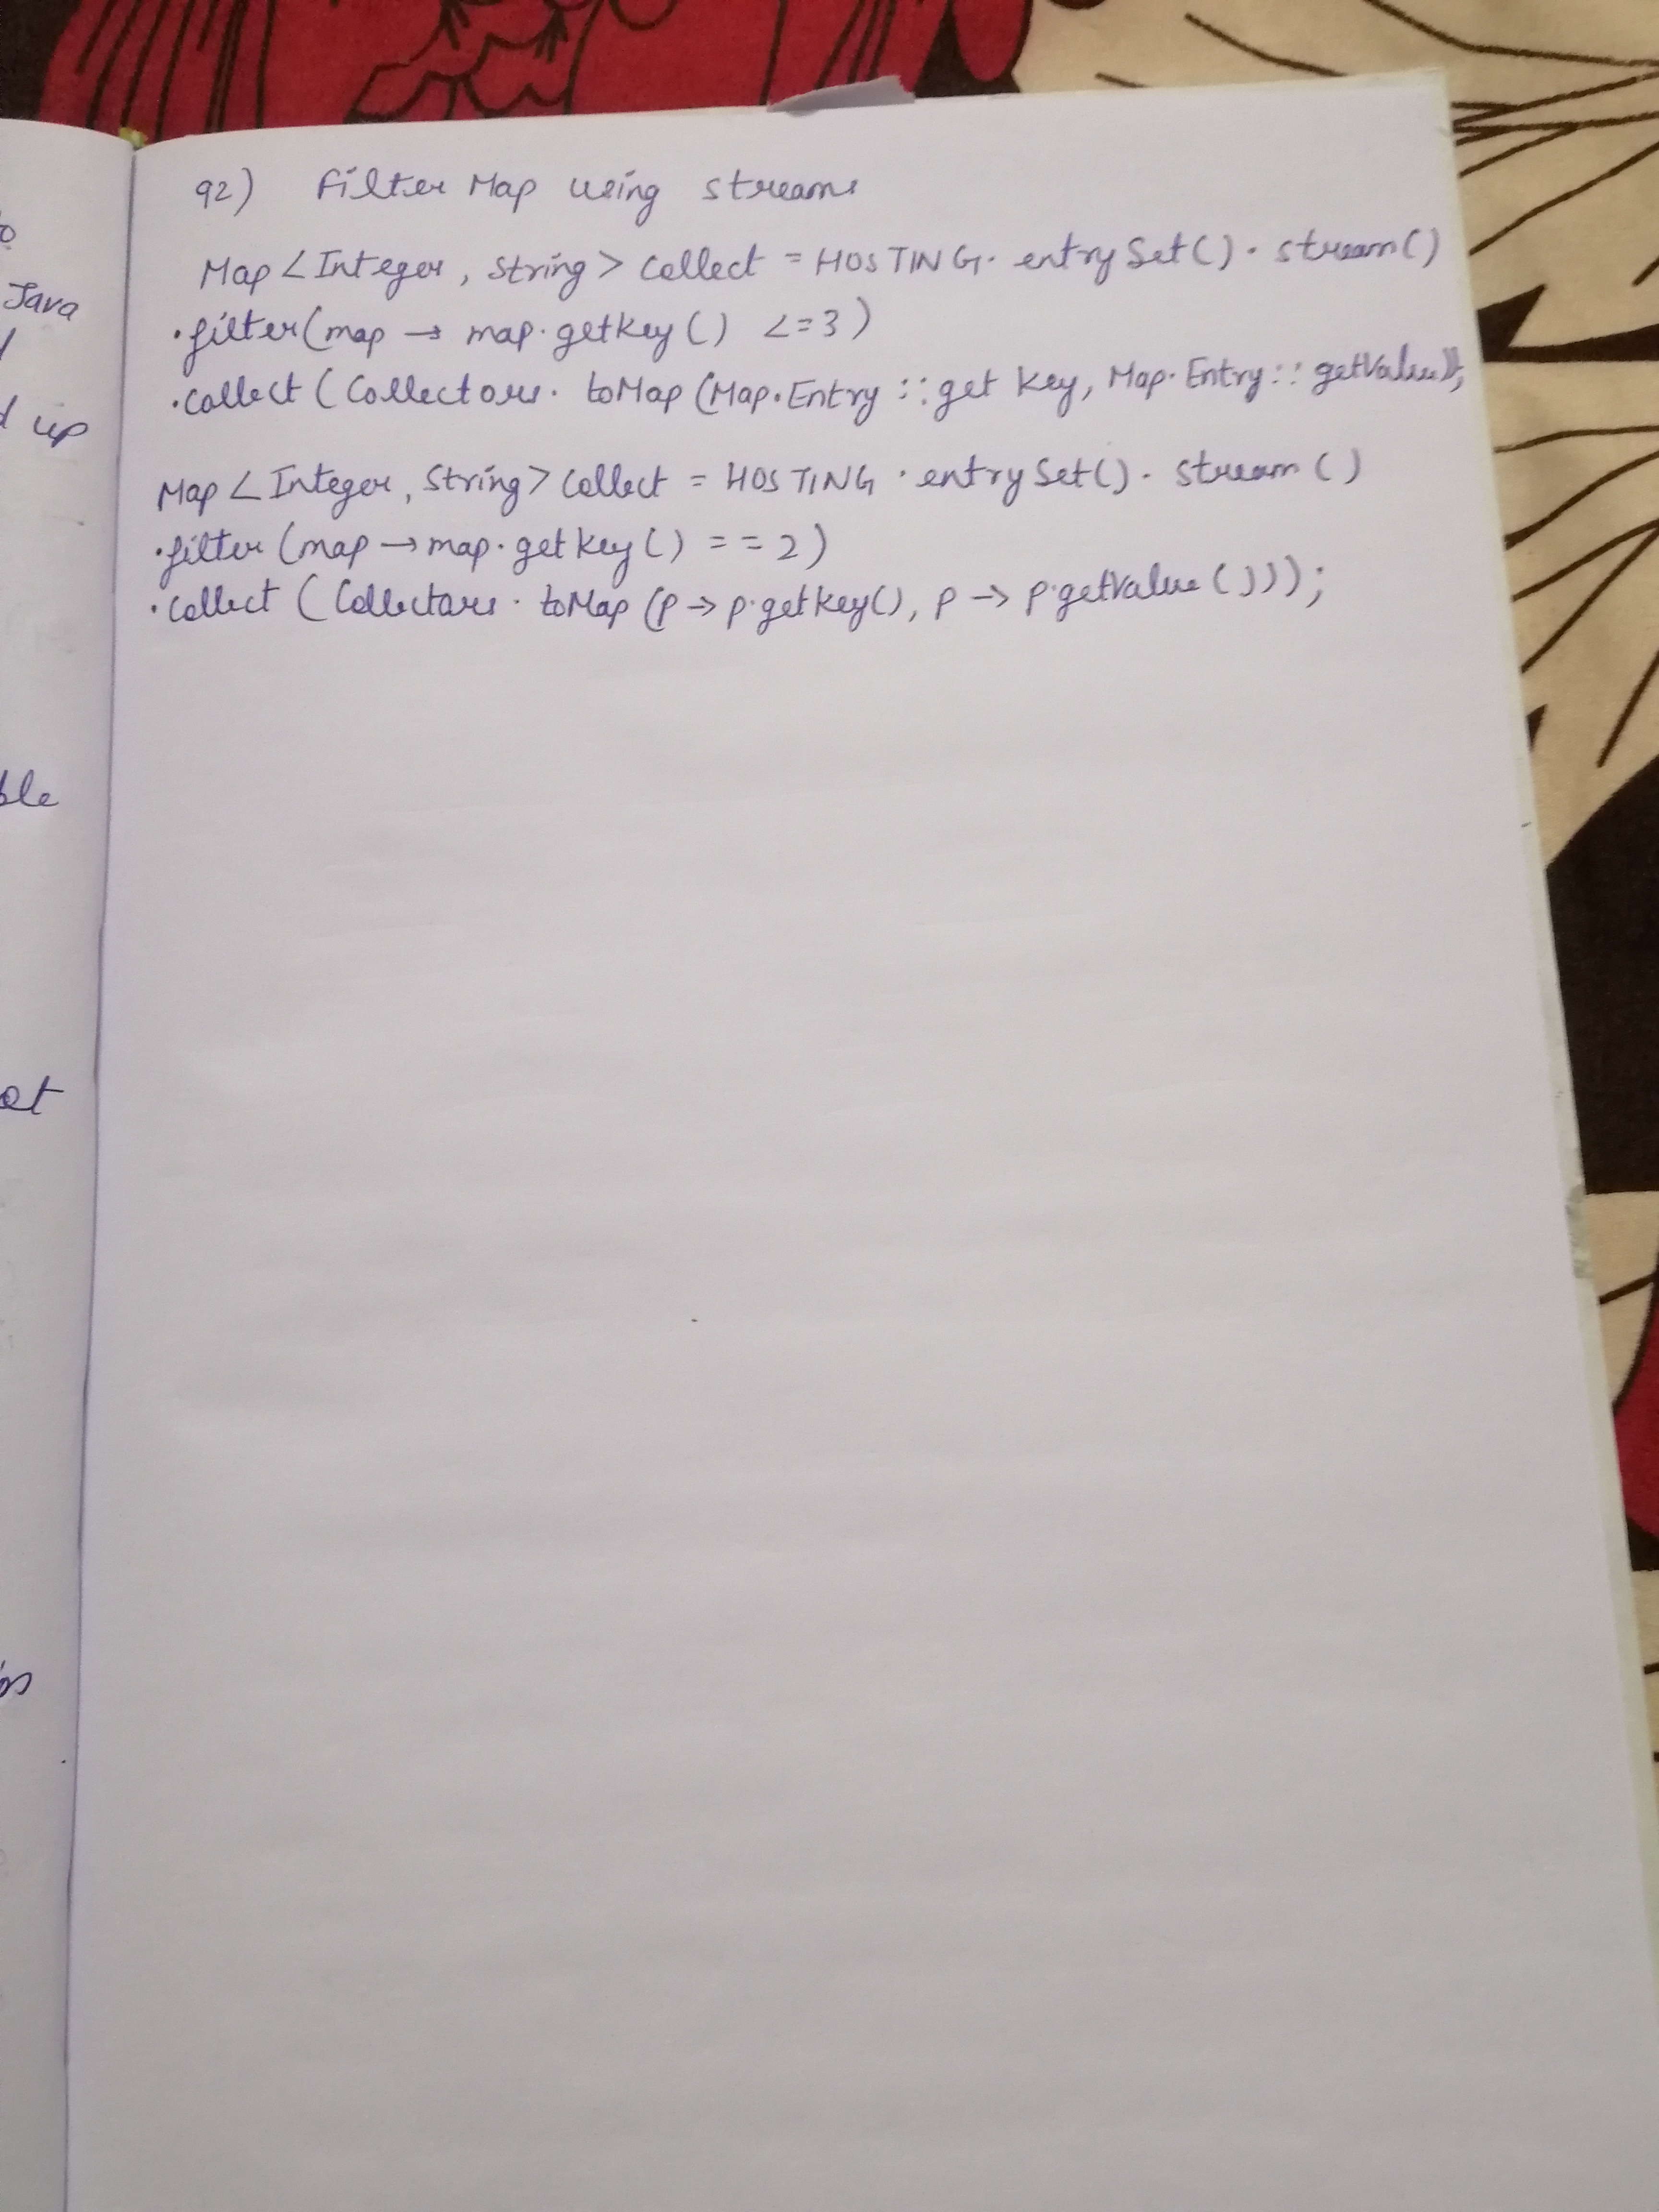 to
Java
d up
ble
ot
92) Filter Map using streams
Map <Integer, String> collect = HOSTING. entrySet(). stream()
.filter(map → map.getkey() <=3)
.collect (Collectors. toMap (Map.Entry :: get key, Map.Entry:: getValue));
Map <Integer, String> collect = HOSTING . entrySet(). stream ()
.filter (map → map. getkey() == 2)
.collect (Collectors. toMap (p → p.getkey(), p → p.getValue()));